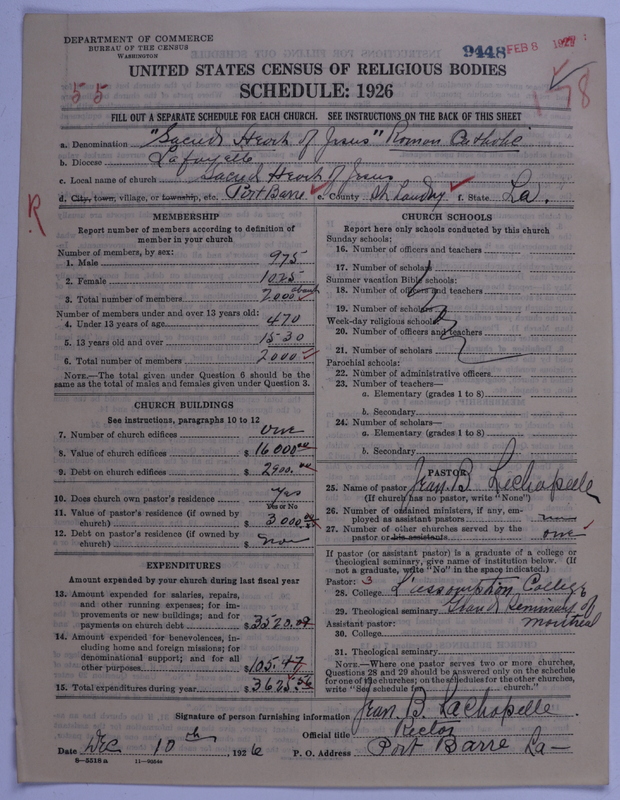 DEPARTMENT OF COMMERCE
BUREAU OF THE CENSUS
WASHINGTON
9448 FEB 8 1927
UNITED STATES CENSUS OF RELIGIOUS BODIES
SCHEDULE: 1926
55
178
FILL OUT A SEPARATE SCHEDULE FOR EACH CHURCH. SEE INSTRUCTIONS ON THE BACK OF THIS SHEET
a. Denomination "Sacred Heart of Jesus" Roman Catholic
b. Diocese Lafayette
c. Local name of church Sacred Heart of Jesus
d. City, town, village, or township, etc. Port Barre e. County St Landry f. State La.
R
MEMBERSHIP
Report number of members according to definition of member in your church
Number of members, by sex:
1. Male 975
2. Female 1025
3. Total number of members 2000 about
Number of members under and over 13 years old:
4. Under 13 years of age 470
5. 13 years old and over 1530
6. Total number of members 2000
NOTE.—The total given under Question 6 should be the same as the total of males and females given under Question 3.
CHURCH BUILDINGS
See instructions, paragraphs 10 to 12
7. Number of church edifices one
8. Value of church edifices $ 16000.00
9. Debt on church edifices $ 2900.00
10. Does church own pastor's residence Yes
Yes or No
11. Value of pastor's residence (if owned by church) $ 3000.00
12. Debt on pastor's residence (if owned by church) $
EXPENDITURES
Amount expended by your church during last fiscal year
13. Amount expended for salaries, repairs, and other running expenses; for improvements or new buildings; and for payments on church debt $ 3520.09
14. Amount expended for benevolences, including home and foreign missions; for denominational support; and for all other purposes $ 105.47
15. Total expenditures during year $ 3625.56
CHURCH SCHOOLS
Report here only schools conducted by this church
Sunday schools:
16. Number of officers and teachers
17. Number of scholars
Summer vacation Bible schools:
18. Number of officers and teachers
19. Number of scholars
Week-day religious schools:
20. Number of officers and teachers
21. Number of scholars
Parochial schools:
22. Number of administrative officers
23. Number of teachers—
a. Elementary (grades 1 to 8)
b. Secondary
24. Number of scholars—
a. Elementary (grades 1 to 8)
b. Secondary
PASTOR
25. Name of pastor Jean B. Lachapelle
(If church has no pastor, write "None")
26. Number of ordained ministers, if any, employed as assistant pastors
27. Number of other churches served by the pastor or his assistants one
If pastor (or assistant pastor) is a graduate of a college or theological seminary, give name of institution below. (If not a graduate, write "No" in the space indicated.)
Pastor: 3
28. College L'assomption College
29. Theological seminary Grand Seminary of Montreal
Assistant pastor:
30. College
31. Theological seminary
NOTE.—Where one pastor serves two or more churches, Questions 28 and 29 should be answered only on the schedule for one of the churches; on the schedules for the other churches, write "See schedule for church."
Signature of person furnishing information Jean. B. Lachapelle
Official title Rector
Date Dec 10th, 1926 P. O. Address Port Barre La—
8-5518a 11-9264a